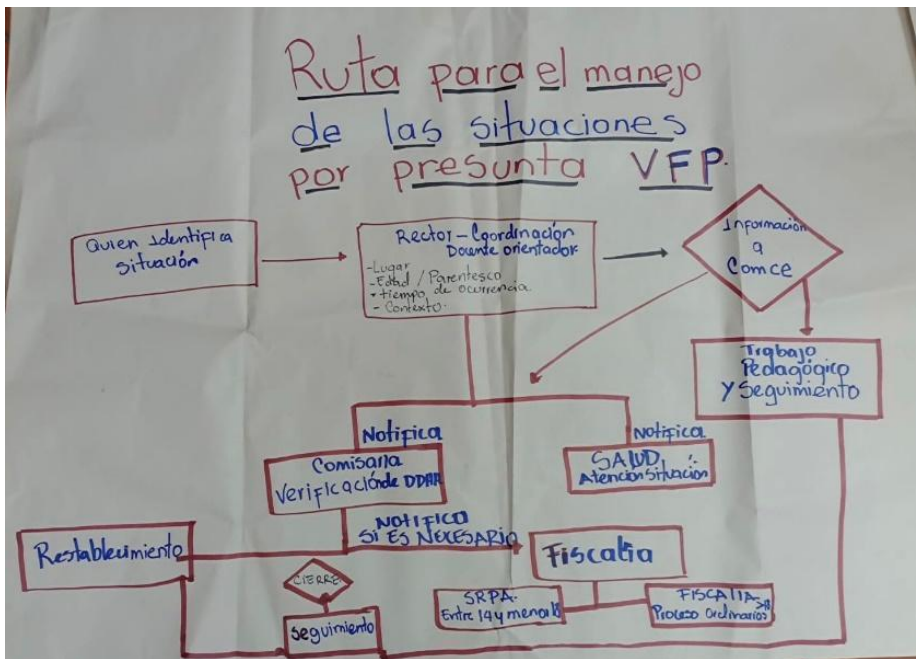 Ruta para el manejo
de las situaciones
por presunta VFP.
Quien Identifica
situación
Rector - Coordinación
Docente orientador
- Lugar
- Edad / Parentesco
- tiempo de ocurrencia
- Contexto.
Información
a
Comce
Trabajo
Pedagógico
y Seguimiento
Notifica
Comisaria
Verificación de DDHH
Notifica
SALUD
Atención Situación
NOTIFICO
SI ES NECESARIO
Restablecimiento
Fiscalia
CIERRE
Seguimiento
SRPA.
Entre 14 y menor 18
FISCALIA >18
Proceso Ordinarios